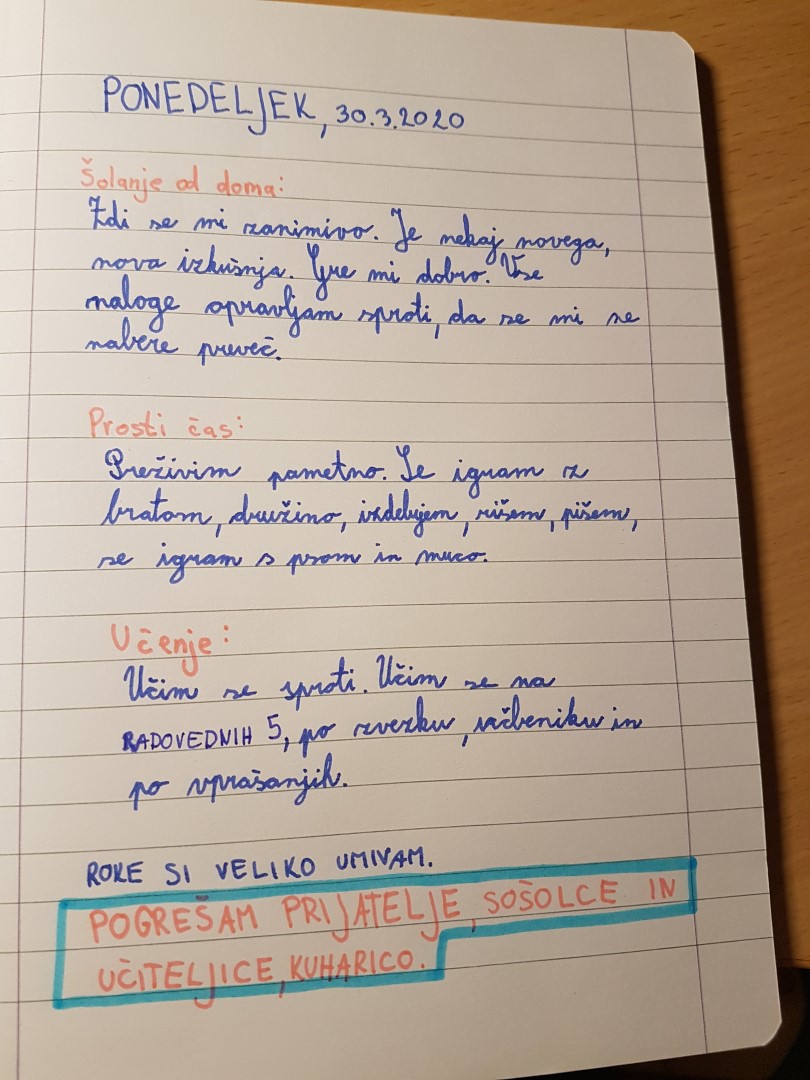 PONEDELJEK, 30.3.2020
Šolanje od doma:
Zdi se mi zanimivo. Je nekaj novega,
nova izkušnja. Gre mi dobro. Vse
naloge opravljam sproti, da se mi ne
nabere preveč.
Prosti čas:
Preživim pametno. Se igram z
bratom, družino, izdelujem, rišem, pišem,
se igram s psom in muco.
Učenje:
Učim se sproti. Učim se na
RADOVEDNIH 5, po zvezku, učbeniku in
po vprašanjih.
ROKE SI VELIKO UMIVAM.
POGREŠAM PRIJATELJE, SOŠOLCE IN
UČITELJICE, KUHARICO.